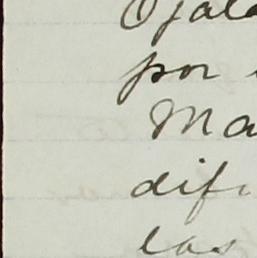 Ojala
por
Ma
difi
las